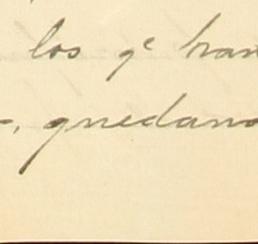 los qe tran
, quedand